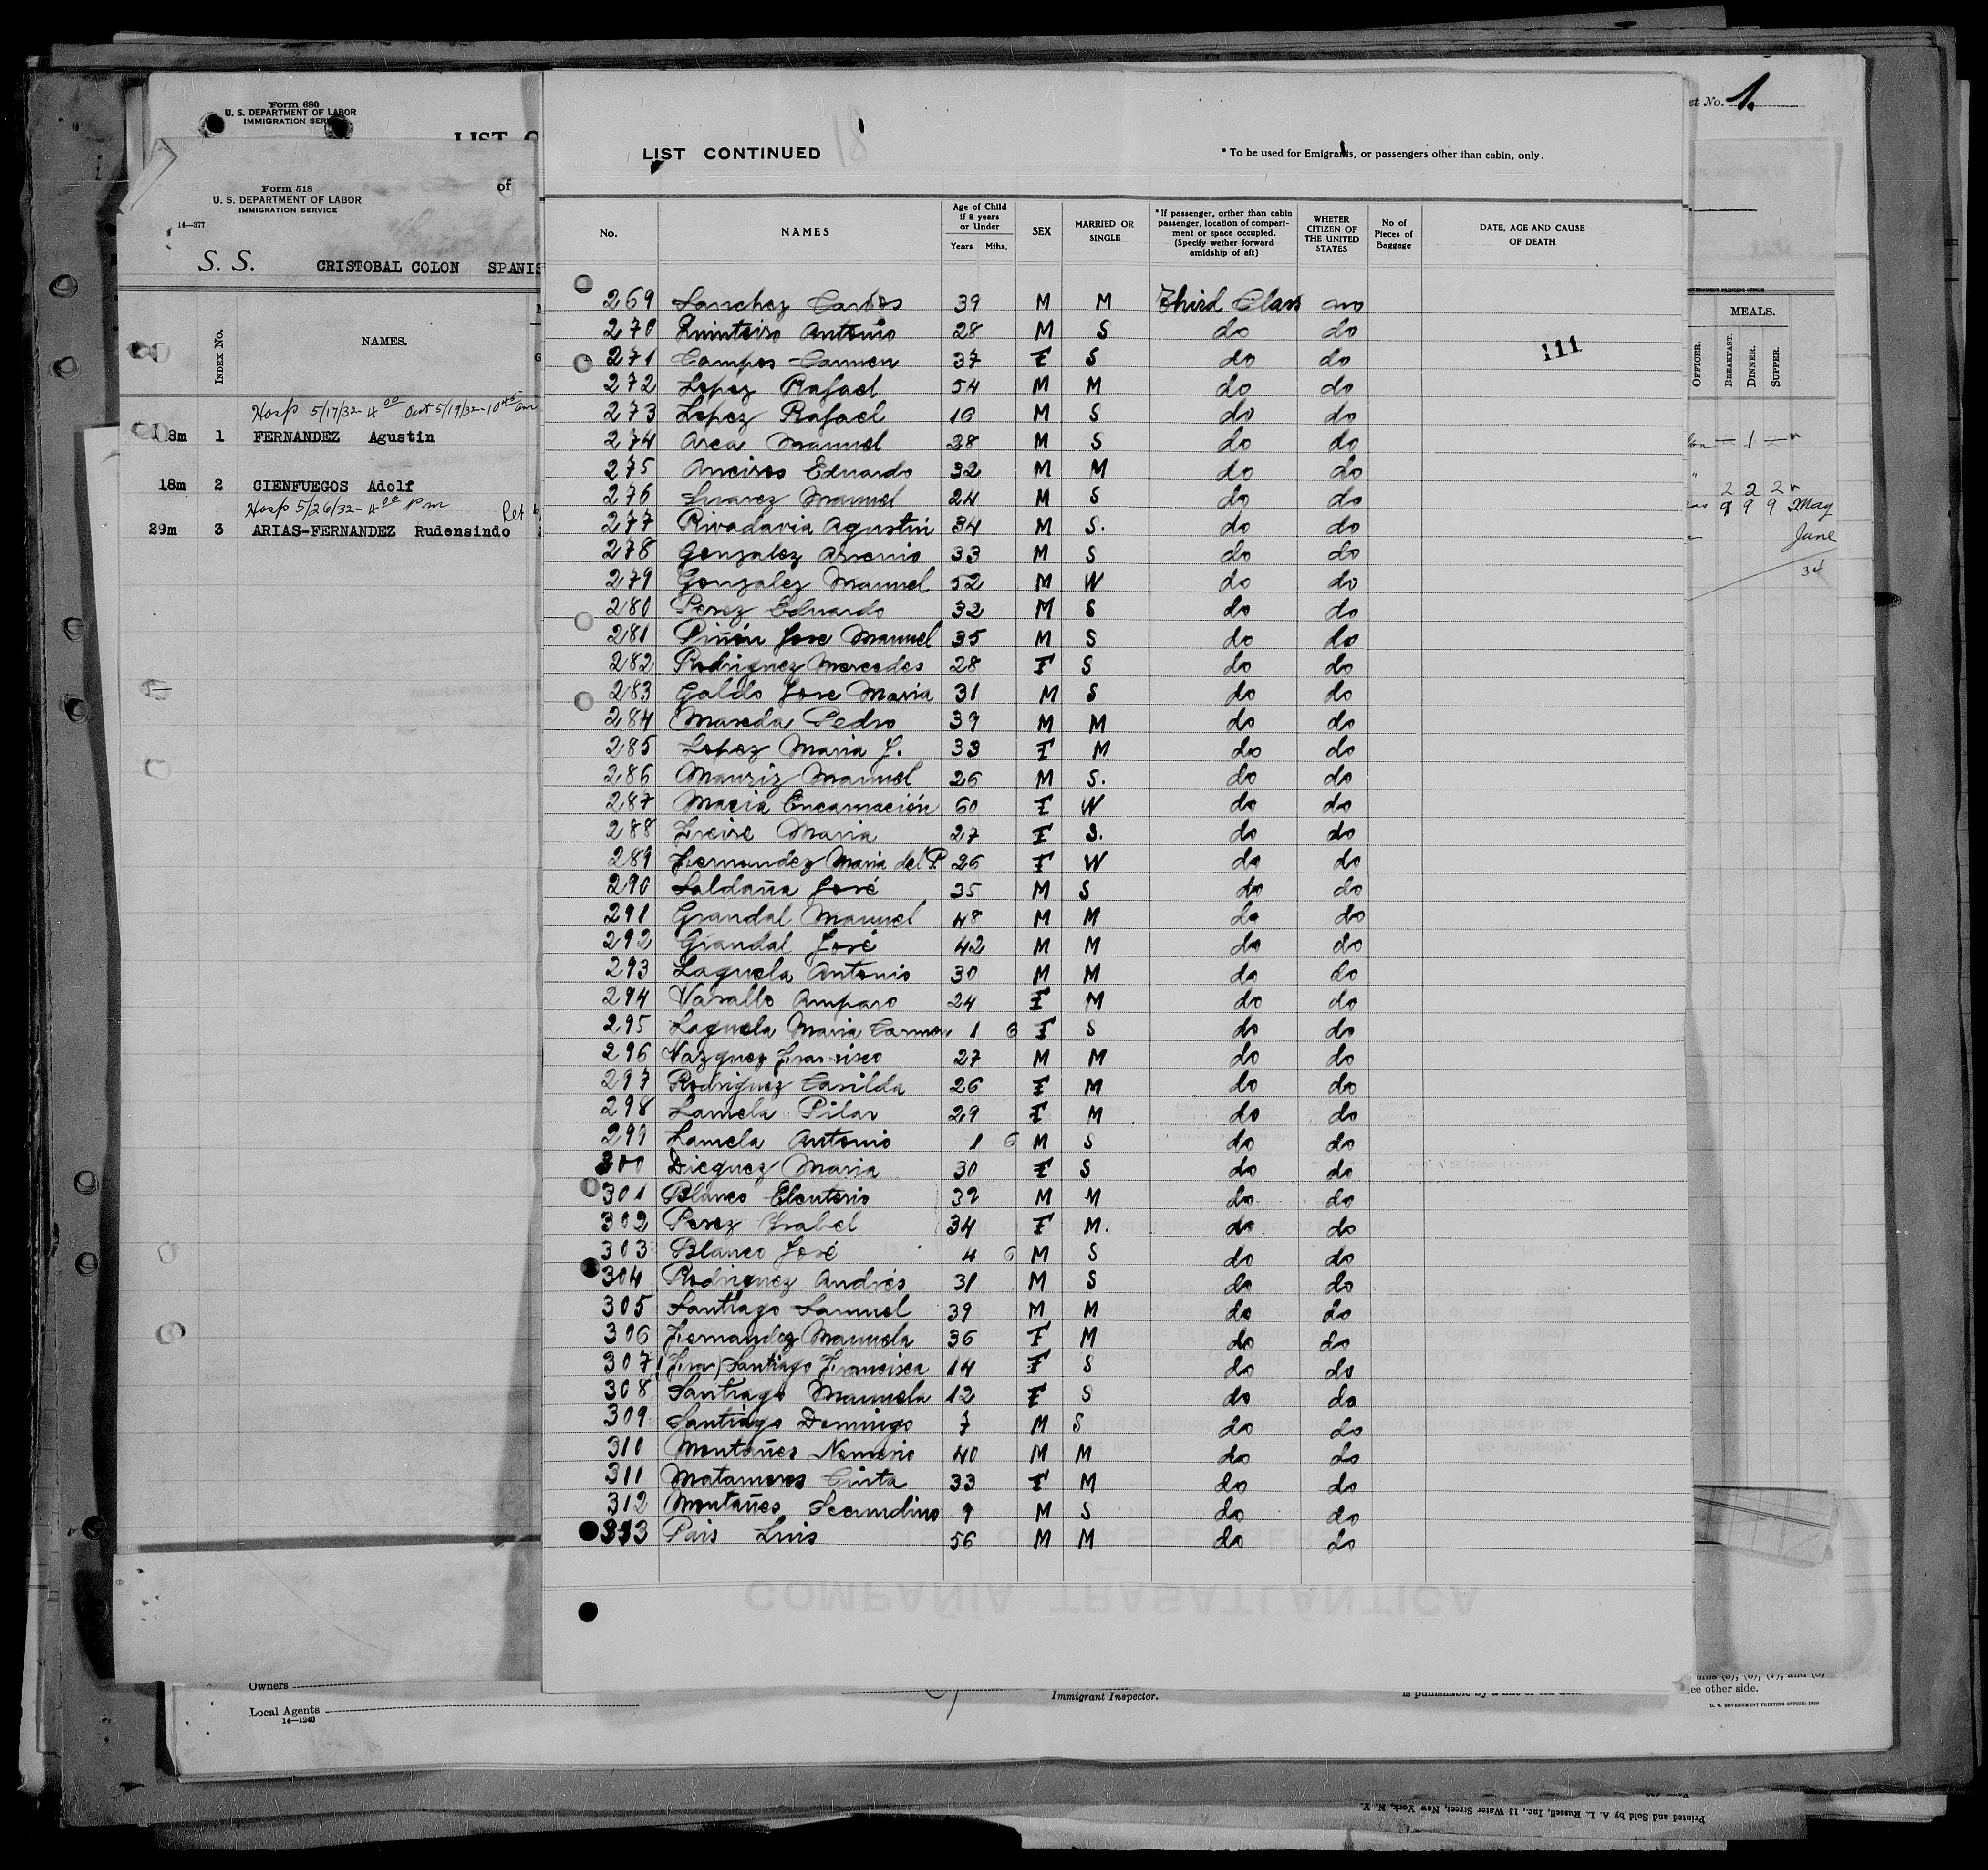 Form 680
U. S. DEPARTMENT OF LABOR
IMMIGRATION SERV
LIST O
Form 518
U. S. DEPARTMENT OF LABOR
IMMIGRATION SERVICE
of
14—377
S. S. CRISTOBAL COLON SPANIS
INDEX No.
NAMES.
Hosp 5/17/32 - 4 00 Out 5/19/32 - 10 45 am
18m 1 FERNANDEZ Agustin
18m 2 CIENFUEGOS Adolf
Hosp 5/26/32 - 4 00 pm
29m 3 ARIAS-FERNANDEZ Rudensindo
Owners
Local Agents
14—1240
18
LIST CONTINUED
* To be used for Emigrants, or passengers other than cabin, only.
No.
NAMES
Age of Child if 8 years or Under
Years Mths,
SEX
MARRIED OR SINGLE
* If passenger, orther than cabin passenger, location of compartment or space occupied. (Specify wether forward amidship of aft)
WHETER CITIZEN OF THE UNITED STATES
No of Pieces of Baggage
DATE, AGE AND CAUSE OF DEATH
111
269 Sanchez Carlos 39 M M Third Class no
270 Quinteiro Antonio 28 M S do do
271 Campos Carmen 37 F S do do
272 Lopez Rafael 54 M M do do
273 Lopez Rafael 16 M S do do
274 Arca Manuel 28 M S do do
275 Aneiros Eduardo 32 M M do do
276 Suarez Manuel 24 M S do do
277 Rivadavia Agustin 34 M S. do do
278 Gonzalez Arsenio 33 M S do do
279 Gonzalez Manuel 52 M W do do
280 Perez Eduardo 32 M S do do
281 Piñón Jose Manuel 35 M S do do
282 Rodriguez Mercedes 28 F S do do
283 Galdo Jose Maria 31 M S do do
284 Maseda Pedro 39 M M do do
285 Lopez Maria J. 33 F M do do
286 Mauriz Manuel 26 M S. do do
287 Macia Encarnación 60 F W do do
288 Freire Maria 27 F S. do do
289 Fernandez Maria del P. 26 F W do do
290 Saldaña José 35 M S do do
291 Grandal Manuel 48 M M do do
292 Grandal José 42 M M do do
293 Laguela Antonio 30 M M do do
294 Vasallo Amparo 24 F M do do
295 Laguela Maria Carmen 1 6 F S do do
296 Vazquez Francisco 27 M M do do
297 Rodriguez Casilda 26 F M do do
298 Lamela Pilar 29 F M do do
299 Lamela Antonio 1 6 M S do do
300 Dieguez Maria 30 F S do do
301 Blanco Eleuterio 32 M M do do
302 Perez Isabel 34 F M. do do
303 Blanco José 4 6 M S do do
304 Rodriguez Andrés 31 M S do do
305 Santiago Samuel 39 M M do do
306 Fernandez Manuela 36 F M do do
307 (Fra) Santiago Francisca 14 F S do do
308 Santiago Manuela 12 F S do do
309 Santiago Domingo 7 M S do do
310 Montañes Nemesio 40 M M do do
311 Matamoros Cinta 33 F M do do
312 Montañes Secundino 9 M S do do
313 Pais Luis 56 M M do do
COMPAÑÍA TRASATLÁNTICA
Immigrant Inspector.
et No. 1.
MEALS.
OFFICER.
BREAKFAST.
DINNER.
SUPPER.
1
2 2 2
9 9 9 May
June
34
ee other side.
U. S. GOVERNMENT PRINTING OFFICE: 1929
Printed and Sold by A. L. Russell, Inc., 13 Water Street, New York, N. Y.